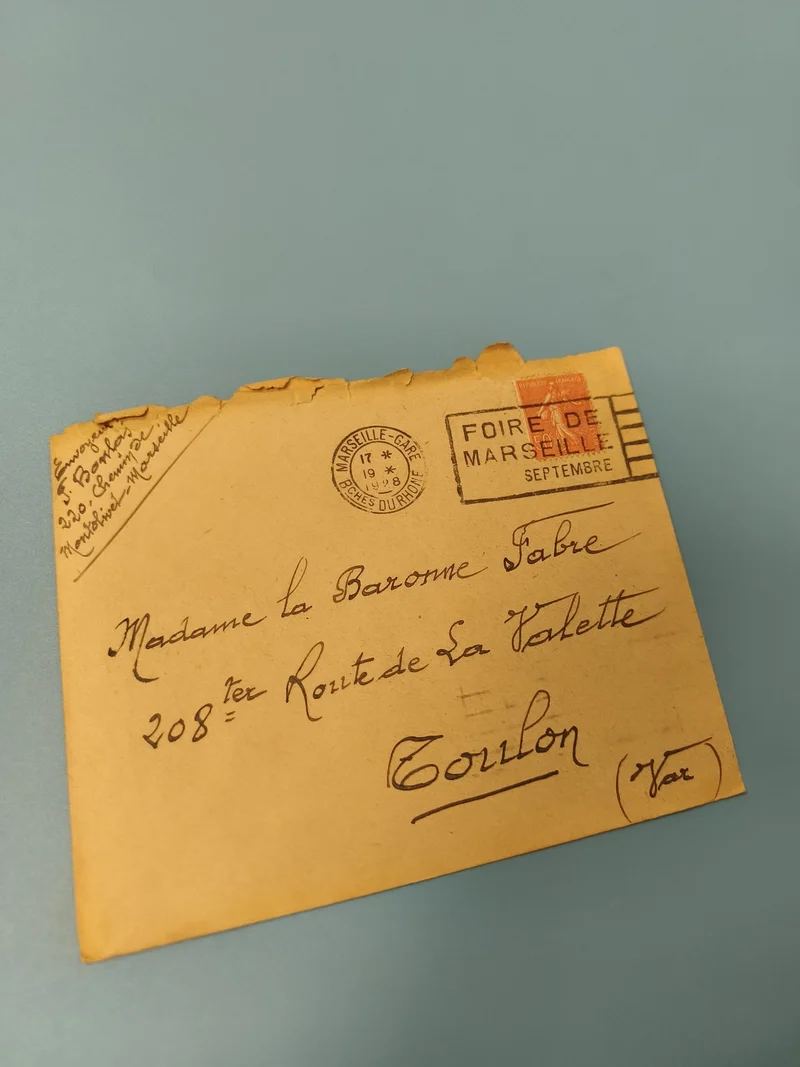 Envoyeur
220. Chemin de
Montolivet-Marseille
MARSEILLE-GARE
17 *
19 *
1928
BCHES DU RHONE
FOIRE DE
MARSEILLE
SEPTEMBRE
Madame la Baronne Fabre
208 ter Route de La Valette
Toulon
(Var)